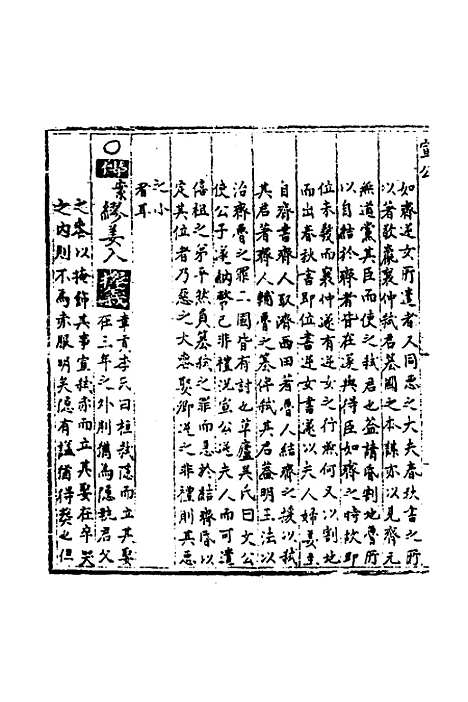 宣公
如齊逆女所遣者人同惡之大夫春秋書之所
以著歌襄仲弑君基國之本謀亦以見齊元
無道黨其臣而使之弑君也蓋請昏割地魯所
以自結於齊者皆在遂與得臣如齊之時故即
位未幾而襄仲遂有逆女之行無何又以割地
而出春秋書即位書逆女書遂以夫人婦姜至
自齊書齊人取濟西田著魯人結齊之援以弑
其君著齊人輔魯之篡俾弑其君蓋明王法以
治齊魯之罪二國皆有討也草廬吳氏曰文公
使公子遂納幣已非禮況宣公逆夫人而可遣
僖祖之弟乎然負篡弑之罪而急於結齊昏以
定其位者乃惡之大惡娶卿逆之非禮則其惡
之小
者耳
○傳 葉繆姜入 經義 章貢李氏曰桓弑隱而立其娶
在三年之外則猶為隱執君父
之容以掩飾其事宣弑赤而立其娶在卒哭
之內則不為赤服明矣隱有謚猶得葬也但